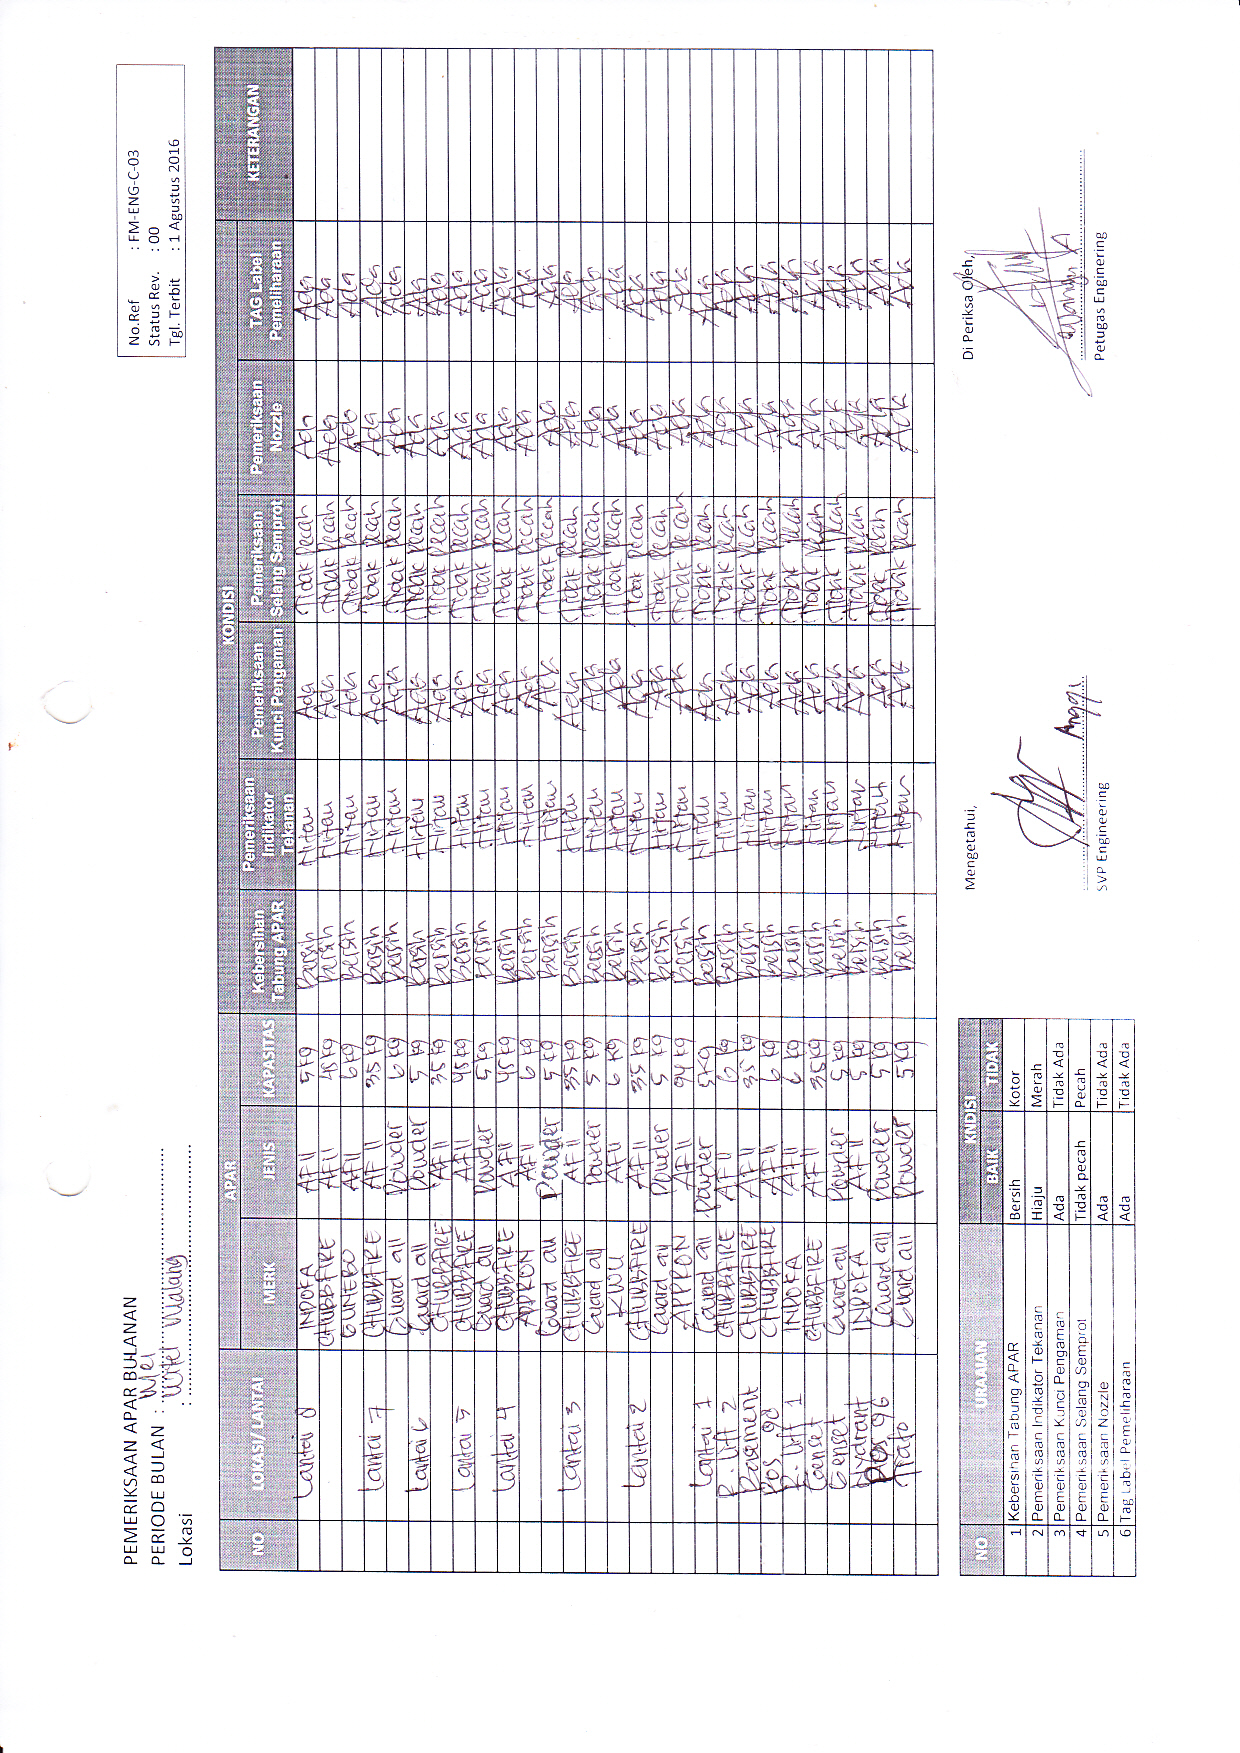 PEMERIKSAAN APAR BULANAN
PERIODE BULAN : Mei
Lokasi : Witel Malang
No.Ref : FM-ENG-C-03
Status Rev. : 00
Tgl. Terbit : 1 Agustus 2016
NO LOKASI/ LANTAI APAR KONDISI KETERANGAN
MERK JENIS KAPASITAS Kebersihan Tabung APAR Pemeriksaan Indikator Tekanan Pemeriksaan Kunci Pengaman Pemeriksaan Selang Semprot Pemeriksaan Nozzle TAG Label Pemeliharaan
Lantai 8 INDOKA AF11 5 kg Bersih Hijau Ada Tidak Pecah Ada Ada
CHUBBFIRE AF11 45 kg Bersih Hijau Ada Tidak Pecah Ada Ada
GUNEBO AF11 6 kg Bersih Hijau Ada Tidak Pecah Ada Ada
Lantai 7 CHUBBFIRE AF11 35 kg Bersih Hijau Ada Tidak Pecah Ada Ada
Guard all Powder 6 kg Bersih Hijau Ada Tidak Pecah Ada Ada
Lantai 6 Guard all Powder 5 kg Bersih Hijau Ada Tidak Pecah Ada Ada
CHUBBFIRE AF11 35 kg Bersih Hijau Ada Tidak Pecah Ada Ada
Lantai 5 CHUBBFIRE AF11 45 kg Bersih Hijau Ada Tidak Pecah Ada Ada
Guard all Powder 5 kg Bersih Hijau Ada Tidak Pecah Ada Ada
Lantai 4 CHUBBFIRE AF11 45 kg Bersih Hijau Ada Tidak Pecah Ada Ada
APPRON AF11 6 kg Bersih Hijau Ada Tidak Pecah Ada Ada
Guard all Powder 5 kg Bersih Hijau Ada Tidak Pecah Ada Ada
Lantai 3 CHUBBFIRE AF11 35 kg Bersih Hijau Ada Tidak Pecah Ada Ada
Guard all Powder 5 kg Bersih Hijau Ada Tidak Pecah Ada Ada
KWU AF11 6 kg Bersih Hijau Ada Tidak Pecah Ada Ada
Lantai 2 CHUBBFIRE AF11 35 kg Bersih Hijau Ada Tidak Pecah Ada Ada
Guard all Powder 5 kg Bersih Hijau Ada Tidak Pecah Ada Ada
APPRON AF11 94 kg Bersih Hijau Ada Tidak Pecah Ada Ada
Lantai 1 Guard all Powder 5 kg Bersih Hijau Ada Tidak Pecah Ada Ada
R. Lift 2 CHUBBFIRE AF11 6 kg Bersih Hijau Ada Tidak Pecah Ada Ada
Basment CHUBBFIRE AF11 35 kg Bersih Hijau Ada Tidak Pecah Ada Ada
Pos 98 CHUBBFIRE AF11 6 kg Bersih Hijau Ada Tidak Pecah Ada Ada
R. Lift 1 INDOKA AF11 6 kg Bersih Hijau Ada Tidak Pecah Ada Ada
Genset CHUBBFIRE AF11 35 kg Bersih Hijau Ada Tidak Pecah Ada Ada
Genset Guard all Powder 5 kg Bersih Hijau Ada Tidak Pecah Ada Ada
Hydrant INDOKA AF11 5 kg Bersih Hijau Ada Tidak Pecah Ada Ada
Pos 96 Guard all Powder 5 kg Bersih Hijau Ada Tidak Pecah Ada Ada
Trafo Guard all Powder 5 kg Bersih Hijau Ada Tidak Pecah Ada Ada
NO URAAIAN KNDISI
BAIK TIDAK
1 Kebersihan Tabung APAR Bersih Kotor
2 Pemeriksaan Indikator Tekanan Hiaju Merah
3 Pemeriksaan Kunci Pengaman Ada Tidak Ada
4 Pemeriksaan Selang Semprot Tidak pecah Pecah
5 Pemeriksaan Nozzle Ada Tidak Ada
6 Tag Label Pemeliharaan Ada Tidak Ada
Mengetahui,
Anggi
SVP Engineering
Di Periksa Oleh,
Petugas Enginering